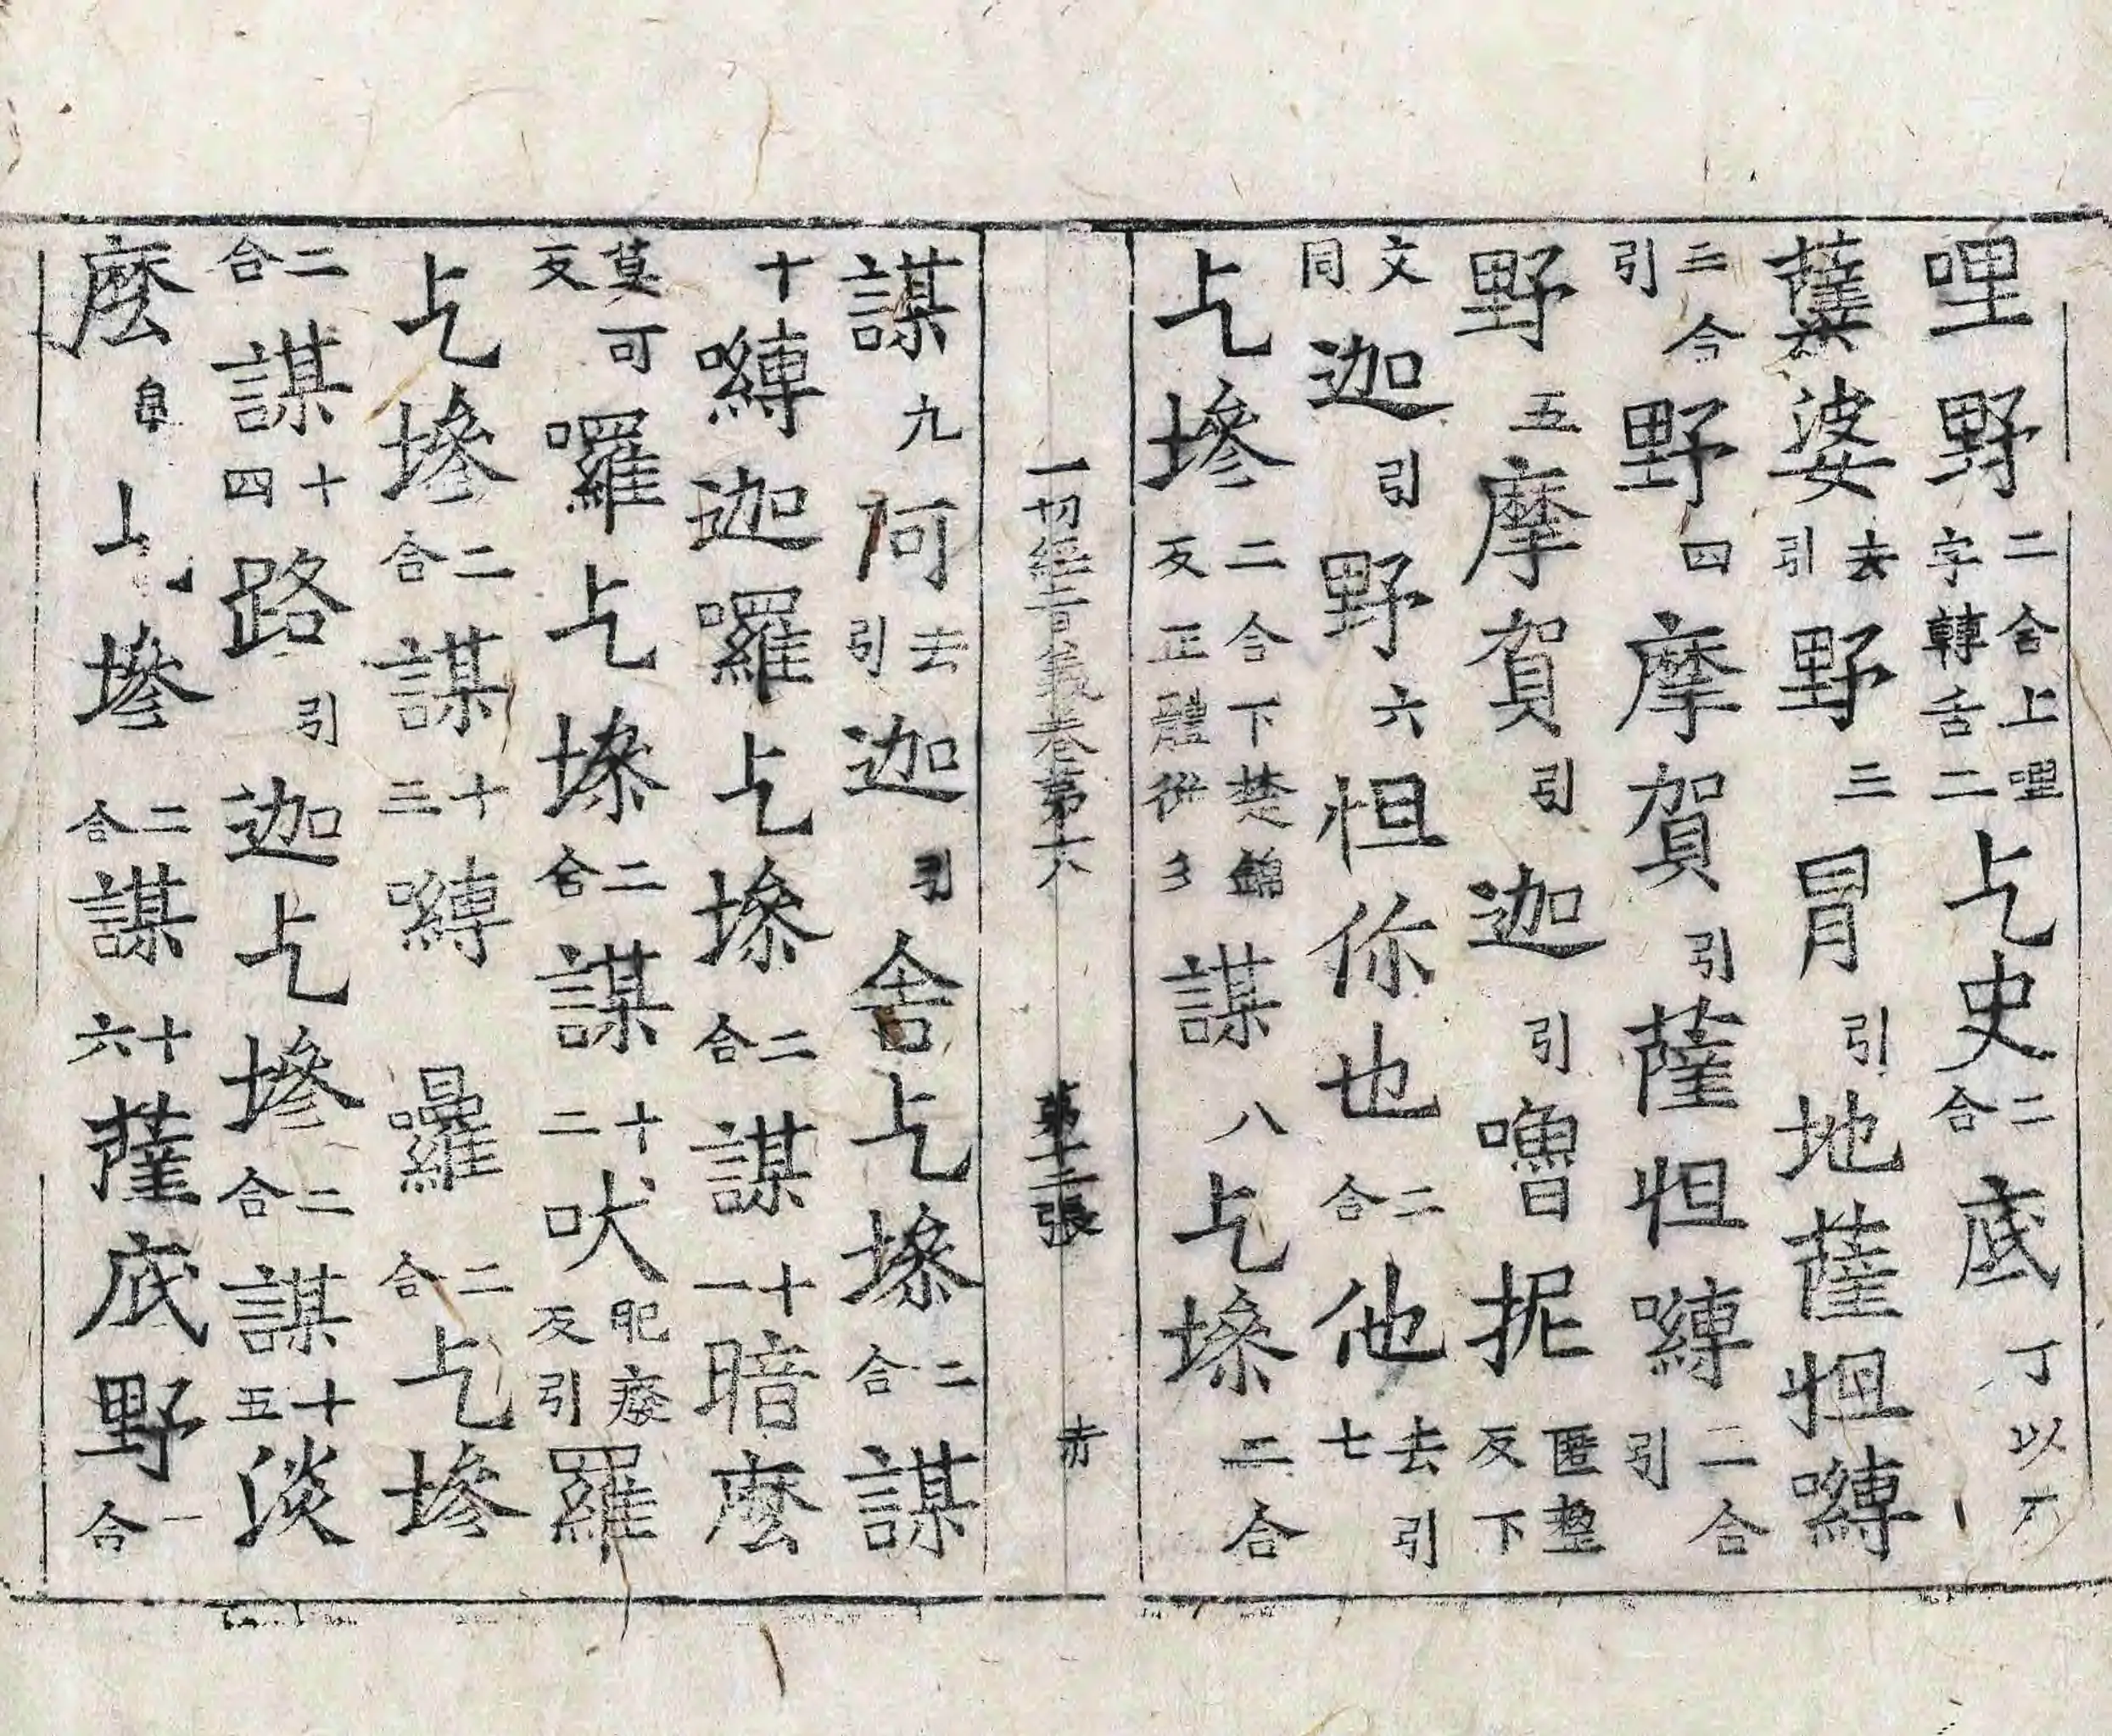 哩野二合上哩字轉舌二乞史二合底丁以
薩婆去引野三冐引地薩怛嚩
二合引野四摩賀引薩怛嚩二合引
野五摩賀引迦引嚕抳匿整反下
文同迦引野六怛你也二合他去引七
乞墋二合下楚錦反正體從彡謀八乞墋二合
一切經音義卷第十八 第十二張 赤
謀九阿去引迦引舍乞墋二合謀
十嚩迦囉乞墋二合謀十一暗麼
莫可反囉乞墋二合謀十二吠肥癈反引羅
乞墋二合謀十三嚩囉二合乞墋
二合謀十四路引迦乞墋二合謀十五淡
麼乞墋二合謀十六薩底野合